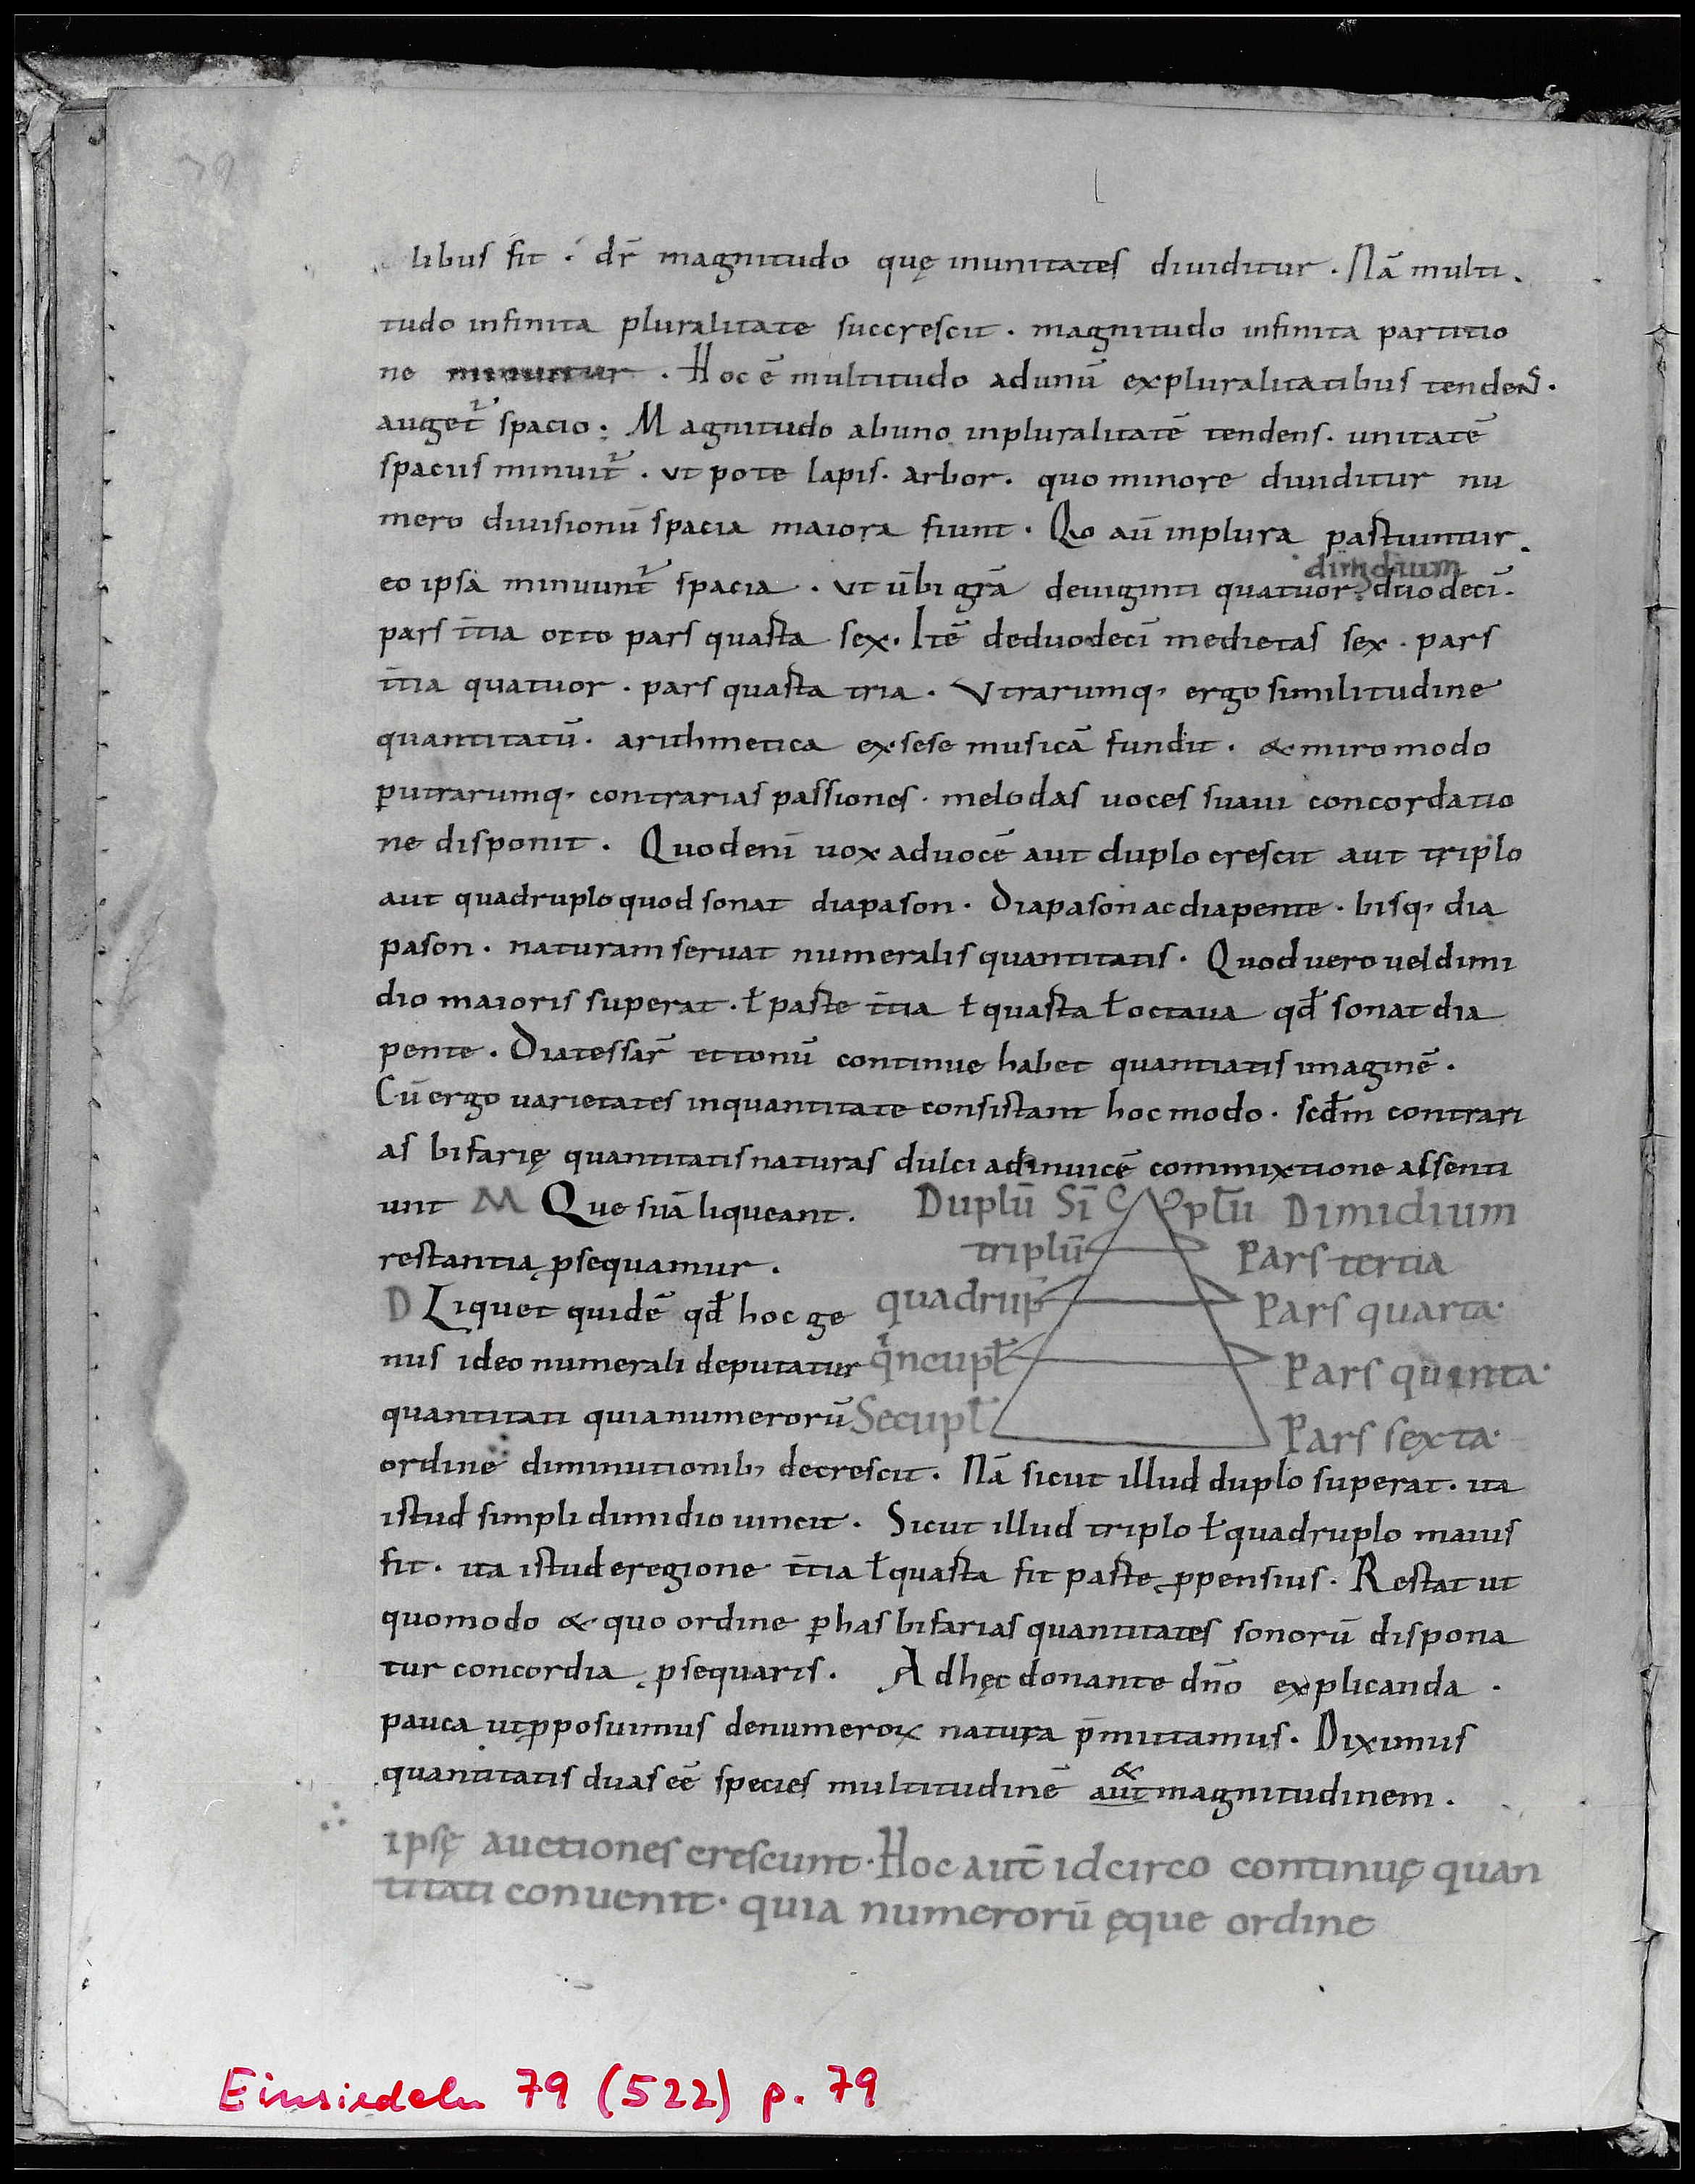 79
libus fit . dr̄ magnitudo quę inunitates diuiditur . Nā multi.
tudo infinita pluralitate succrescit . magnitudo infinita partitio
ne minuitur . Hoc ē multitudo adunū expluralitatibus tendens .
auget᷑ spacio : Magnitudo abuno inpluralitatē tendens . unitatē
spaciis minuit᷑ . ut pote lapis . arbor . quo minore diuiditur nu
mero diuisionū spacia maiora fiunt . Quo aū inplura partiuntur .
dimidium
eo ipsa minuunt᷑ spacia . ut ūbi grā deuiginti quatuor duodecī .
pars t̄tia octo pars quarta sex . Itē deduodecī medietas sex . pars
t̄tia quatuor . pars quarta tria . Vtrarumq, ergo similitudine
quantitatū . arithmetica exsese musicā fundit . & miro modo
ꝑutrarumq, contrarias passiones . melodas uoces suaui concordatio
ne disponit . Quod eni uox aduocē aut duplo crescit aut triplo
aut quadruplo quod sonat diapason . Diapason ac diapente . bisq, dia
pason . naturam seruat numeralis quantitatis . Quod uero uel dimi
dio maioris superat . ł parte t̄tia ł quarta ł octaua qđ sonat dia
pente . Diatessar̄ et tonū continue habet quantiatis imaginē .
Cū ergo uarietates inquantitate consistant hoc modo . scđm contrari
as bifarię quantitatis naturas dulci adinuicē commixtione assenti
unt M Que suā liqueant .
Duplū Sī plū Dimidium
restantia ꝓsequamur .
triplū Pars tertia
D Liquet quidē qđ hoc ge
quadrup̄ Pars quarta .
nus ideo numerali deputatur
qͥncupł Pars quinta .
quantitati quia numerorū
Secupł Pars sexta .
ordine diminutionib, decrescit . Nā sicut illud duplo superat . ita
istud simpli dimidio uincit . Sicut illud triplo ł quadruplo maius
fit . ita istud eregione t̄tia ł quarta fit parte ꝓpensius . Restat ut
quomodo & quo ordine ꝑ has bifarias quantitates sonorū dispona
tur concordia ꝓsequaris . Ad hęc donante dn̄o explicanda .
pauca ut ꝓposuimus denumeroꝝ natura p̄mittamus . Diximus
&
quantitatis duas eē species multitudinē aut magnitudinem .
ipsę auctiones crescunt . Hoc aut̄ idcirco continuę quan
titati conuenit . quia numerorū ęque ordine
Einsiedeln 79 (522) p. 79